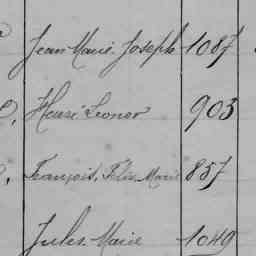 Jean Marie Joseph 1087
Henri Leonor 903
François, Félix Marie 857
Jules Marie 1049